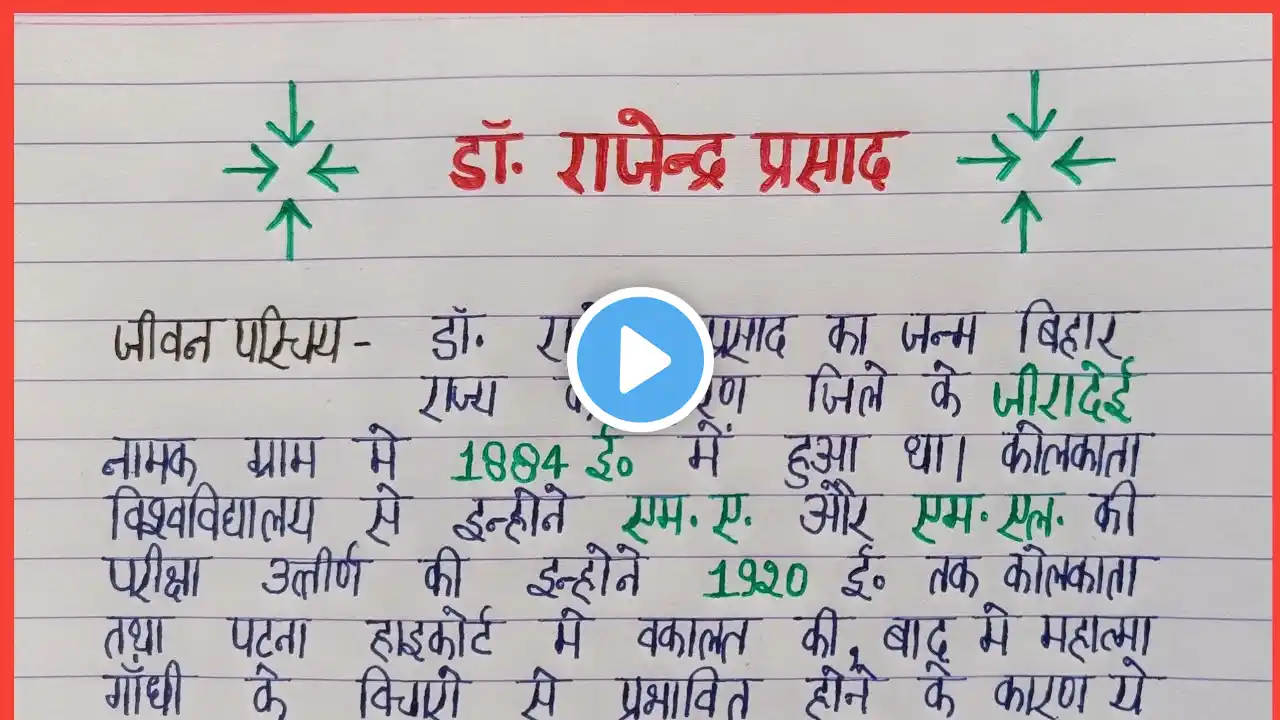 डॉ. राजेन्द्र प्रसाद
जीवन परिचय - डॉ. प्रसाद का जन्म बिहार
राज्य जिले के जीरादेई
नामक ग्राम मे 1884 ई० में हुआ था। कोलकाता
विश्वविद्यालय से इन्होने एम. ए. और एम. एल. की
परीक्षा उत्तीर्ण की इन्होने 1920 ई० तक कोलकाता
तथा पटना हाइकोर्ट मे वकालत की, बाद मे महात्मा
गाँधी के विचारो से प्रभावित होने के कारण ये